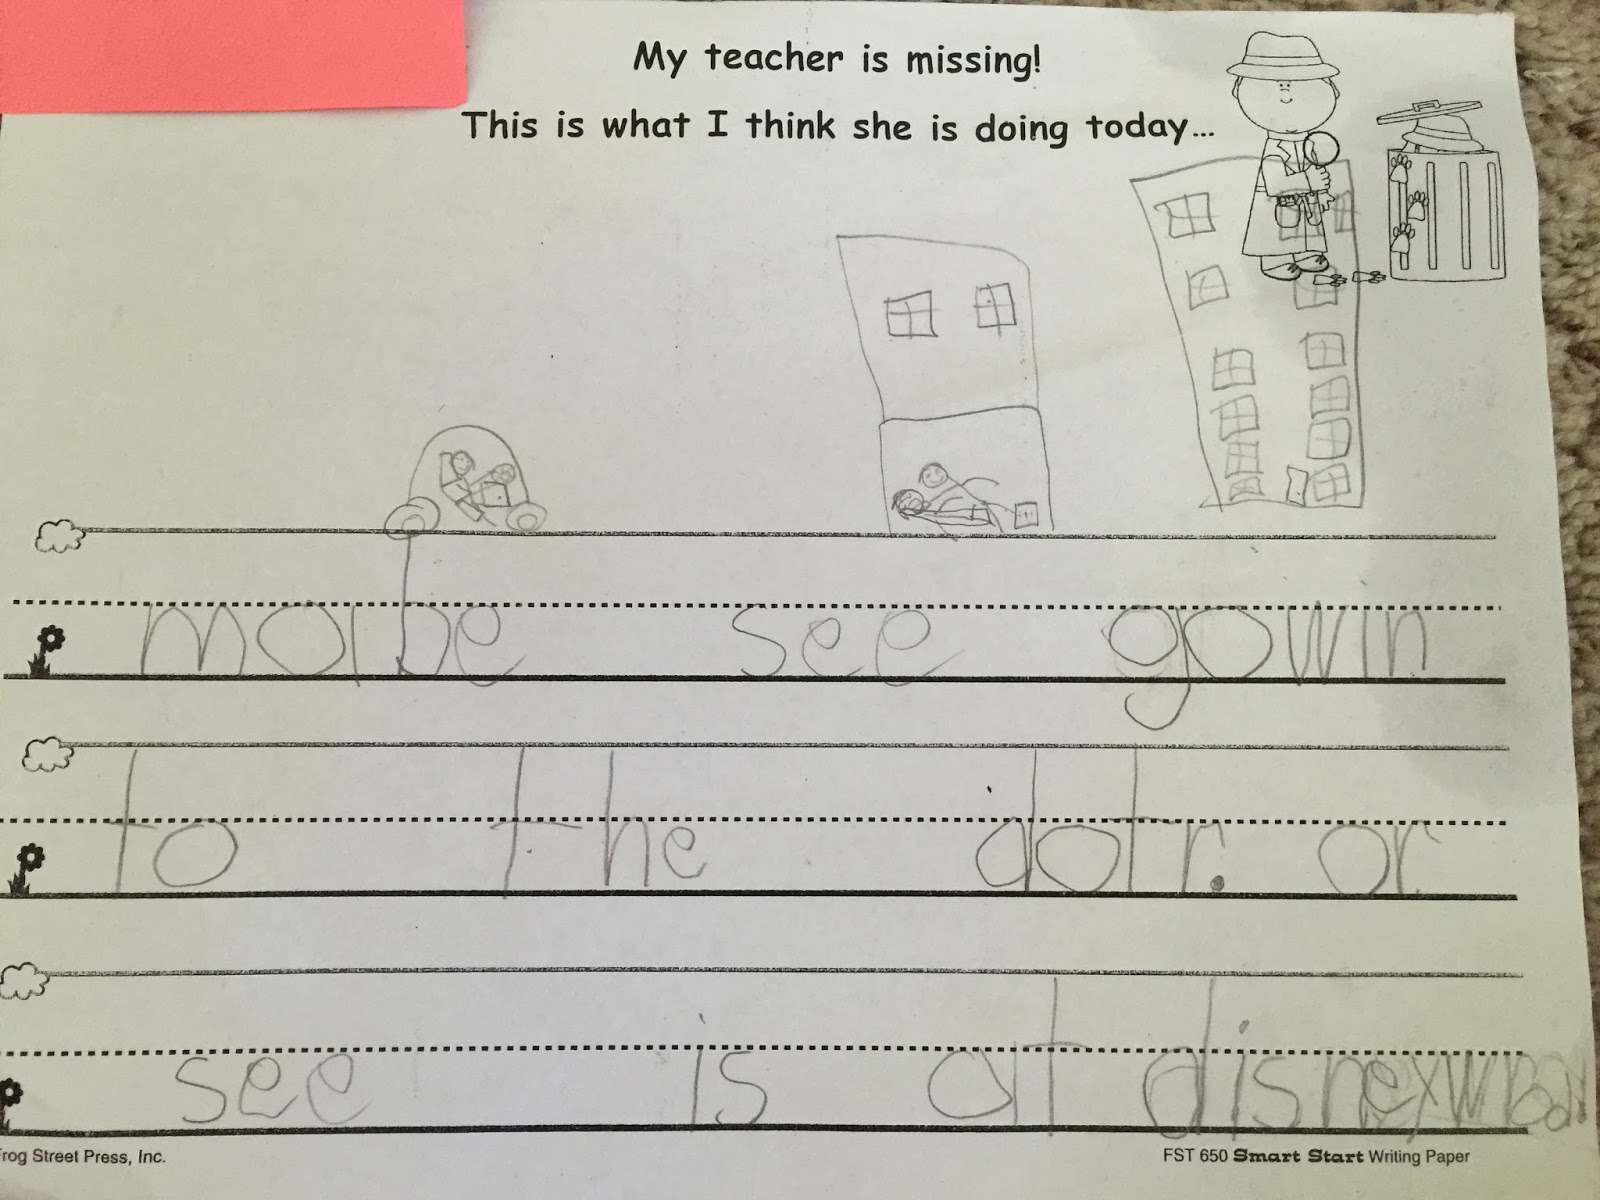 My teacher is missing!
This is what I think she is doing today...
maibe see gowin
to the dotr. or
see is at disney
rog Street Press, Inc. FST 650 Smart Start Writing Paper